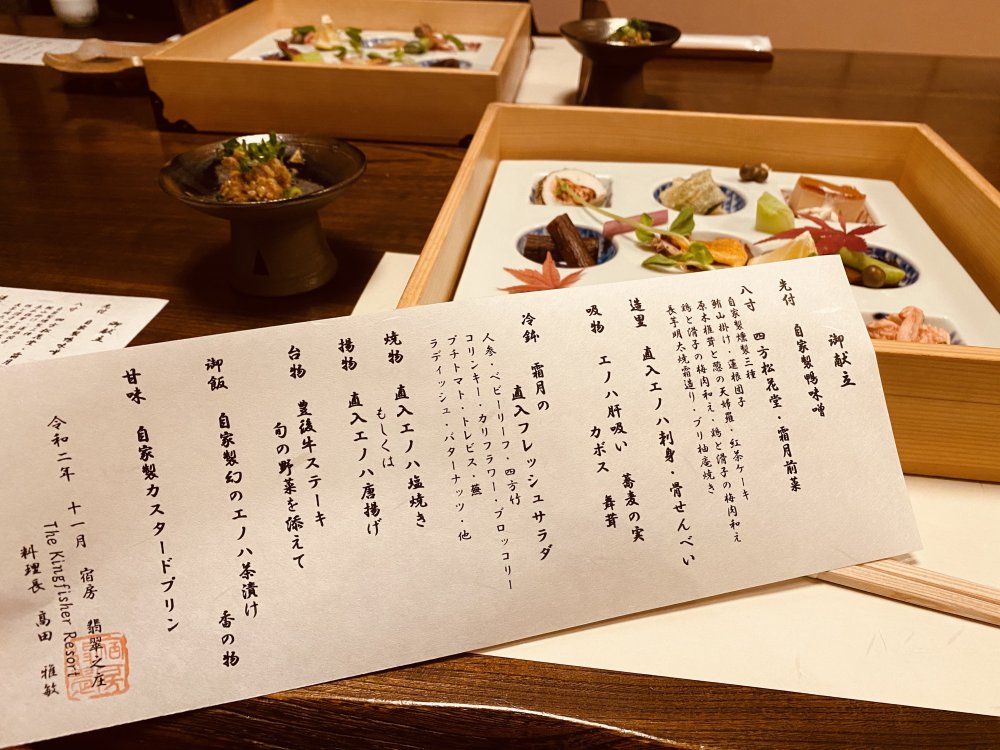 御献立
先付　自家製鴨味噌
八寸　四方松花堂・霜月前菜
自家製燻製三種
鮪山掛け・蓮根団子・紅茶ケーキ
原木椎茸と葱の天婦羅・鶏と滑子の梅肉和え
鶏と滑子の梅肉和え・ブリ柚庵焼き
長芋明太焼霜造り
造里　直入エノハ刺身・骨せんべい
蕎麦の実
吸物　エノハ肝吸い
カボス　舞茸
冷鉢　霜月の
直入フレッシュサラダ
人参・ベビーリーフ・四方竹
コリンキー・カリフラワー・ブロッコリー
プチトマト・トレビス・蕪
ラディッシュ・バターナッツ・他
焼物　直入エノハ塩焼き
もしくは
揚物　直入エノハ唐揚げ
台物　豊後牛ステーキ
旬の野菜を添えて
御飯　自家製幻のエノハ茶漬け
香の物
甘味　自家製カスタードプリン
令和二年　十一月　宿房　翡翠之庄
The Kingfisher Resort
料理長　高田　雅敏
御献立
先付
八寸